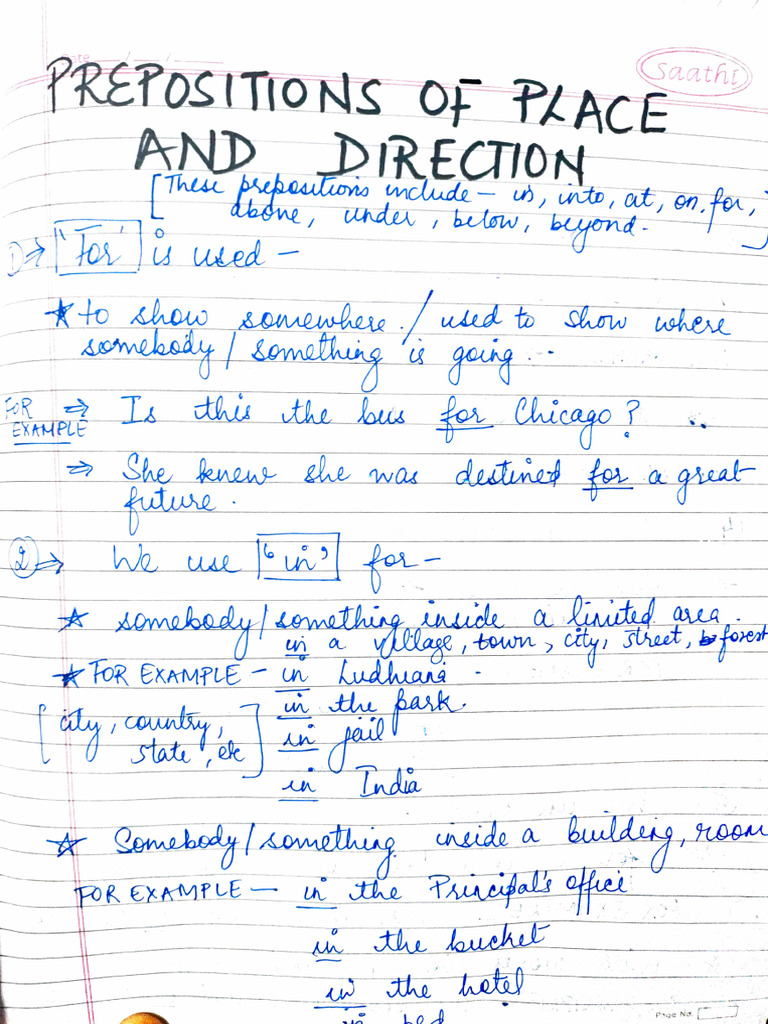 Date
Saathi
PREPOSITIONS OF PLACE
AND DIRECTION
[These prepositions include - in, into, at, on, for,
above, under, below, beyond.]
1) ⇒ 'For' is used -
★ to show somewhere. / used to show where
somebody / something is going...
FOR EXAMPLE ⇒ Is this the bus for Chicago?
⇒ She knew she was destined for a great
future.
② ⇒ We use 'in' for -
★ somebody/something inside a limited area.
in a village, town, city, street, forest
★ FOR EXAMPLE - in Ludhiana
in the park.
[city, country, state, etc] in jail
in India
★ Somebody/something inside a building, room
FOR EXAMPLE - in the Principal's office
in the bucket
in the hotel
in bed
Page No.